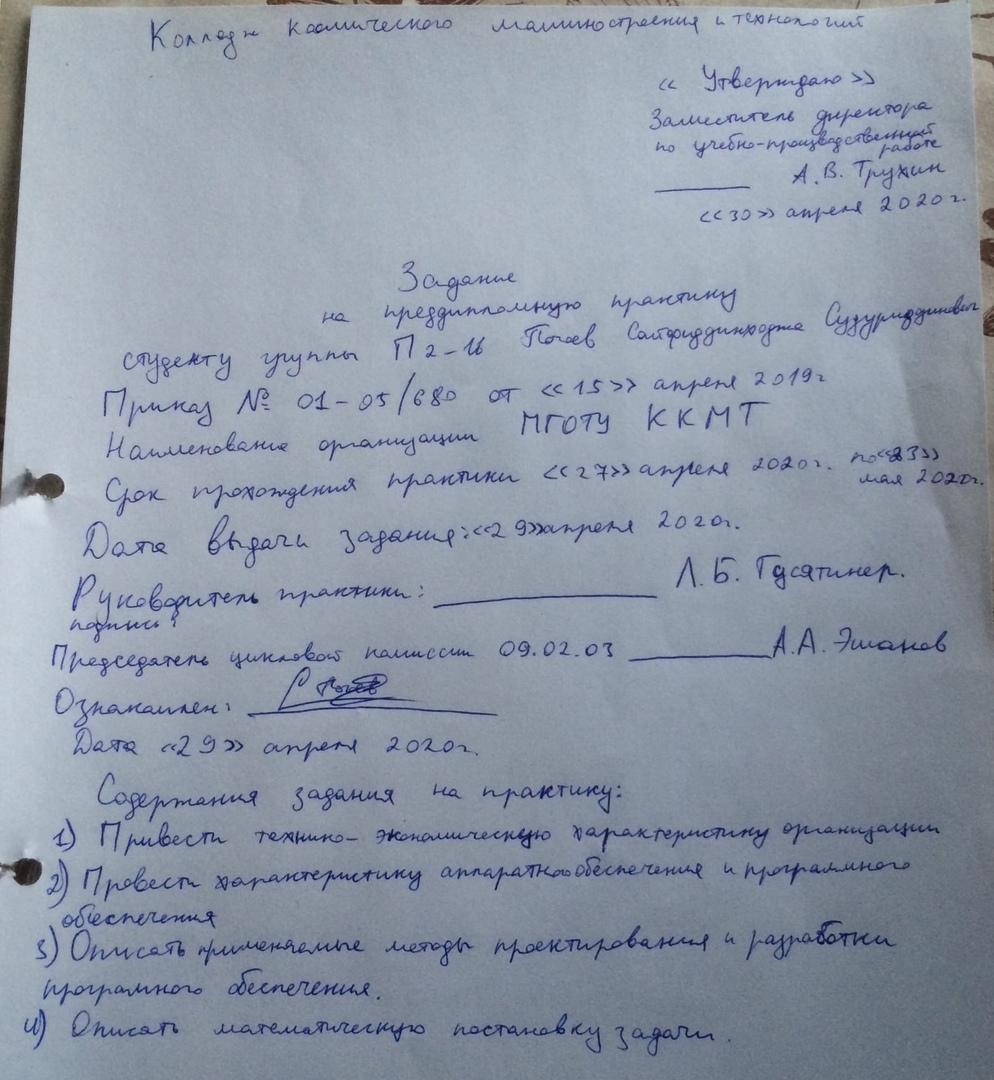 Колледж космического машиностроения и технологий
«Утверждаю»
Заместитель директора
по учебно-производственной
работе
А.В. Трухин
«30» апреля 2020г.
Задание
на преддипломную практику
студенту группы П2-16 Почоев Сайфиддинходжа
Приказ № 01-05/680 от «15» апреля 2019г
Наименование организации МГОТУ ККМТ
Срок прохождения практики «27» апреля 2020г. по «23»
мая 2020г.
Дата выдачи задания: «29» апреля 2020г.
Руководитель практики: Л.Б. Гусятинер.
подпись:
Председатель цикловой комиссии 09.02.03 А.А. Эшанов
Ознакомлен:
Дата «29» апреля 2020г.
Содержания задания на практику:
1) Привести технико-экономическую характеристику организации
2) Провести характеристику аппаратного обеспечения и програмного
обеспечения
3) Описать применяемые методы проектирования и разработки
програмного обеспечения.
4) Описать математическую постановку задачи.